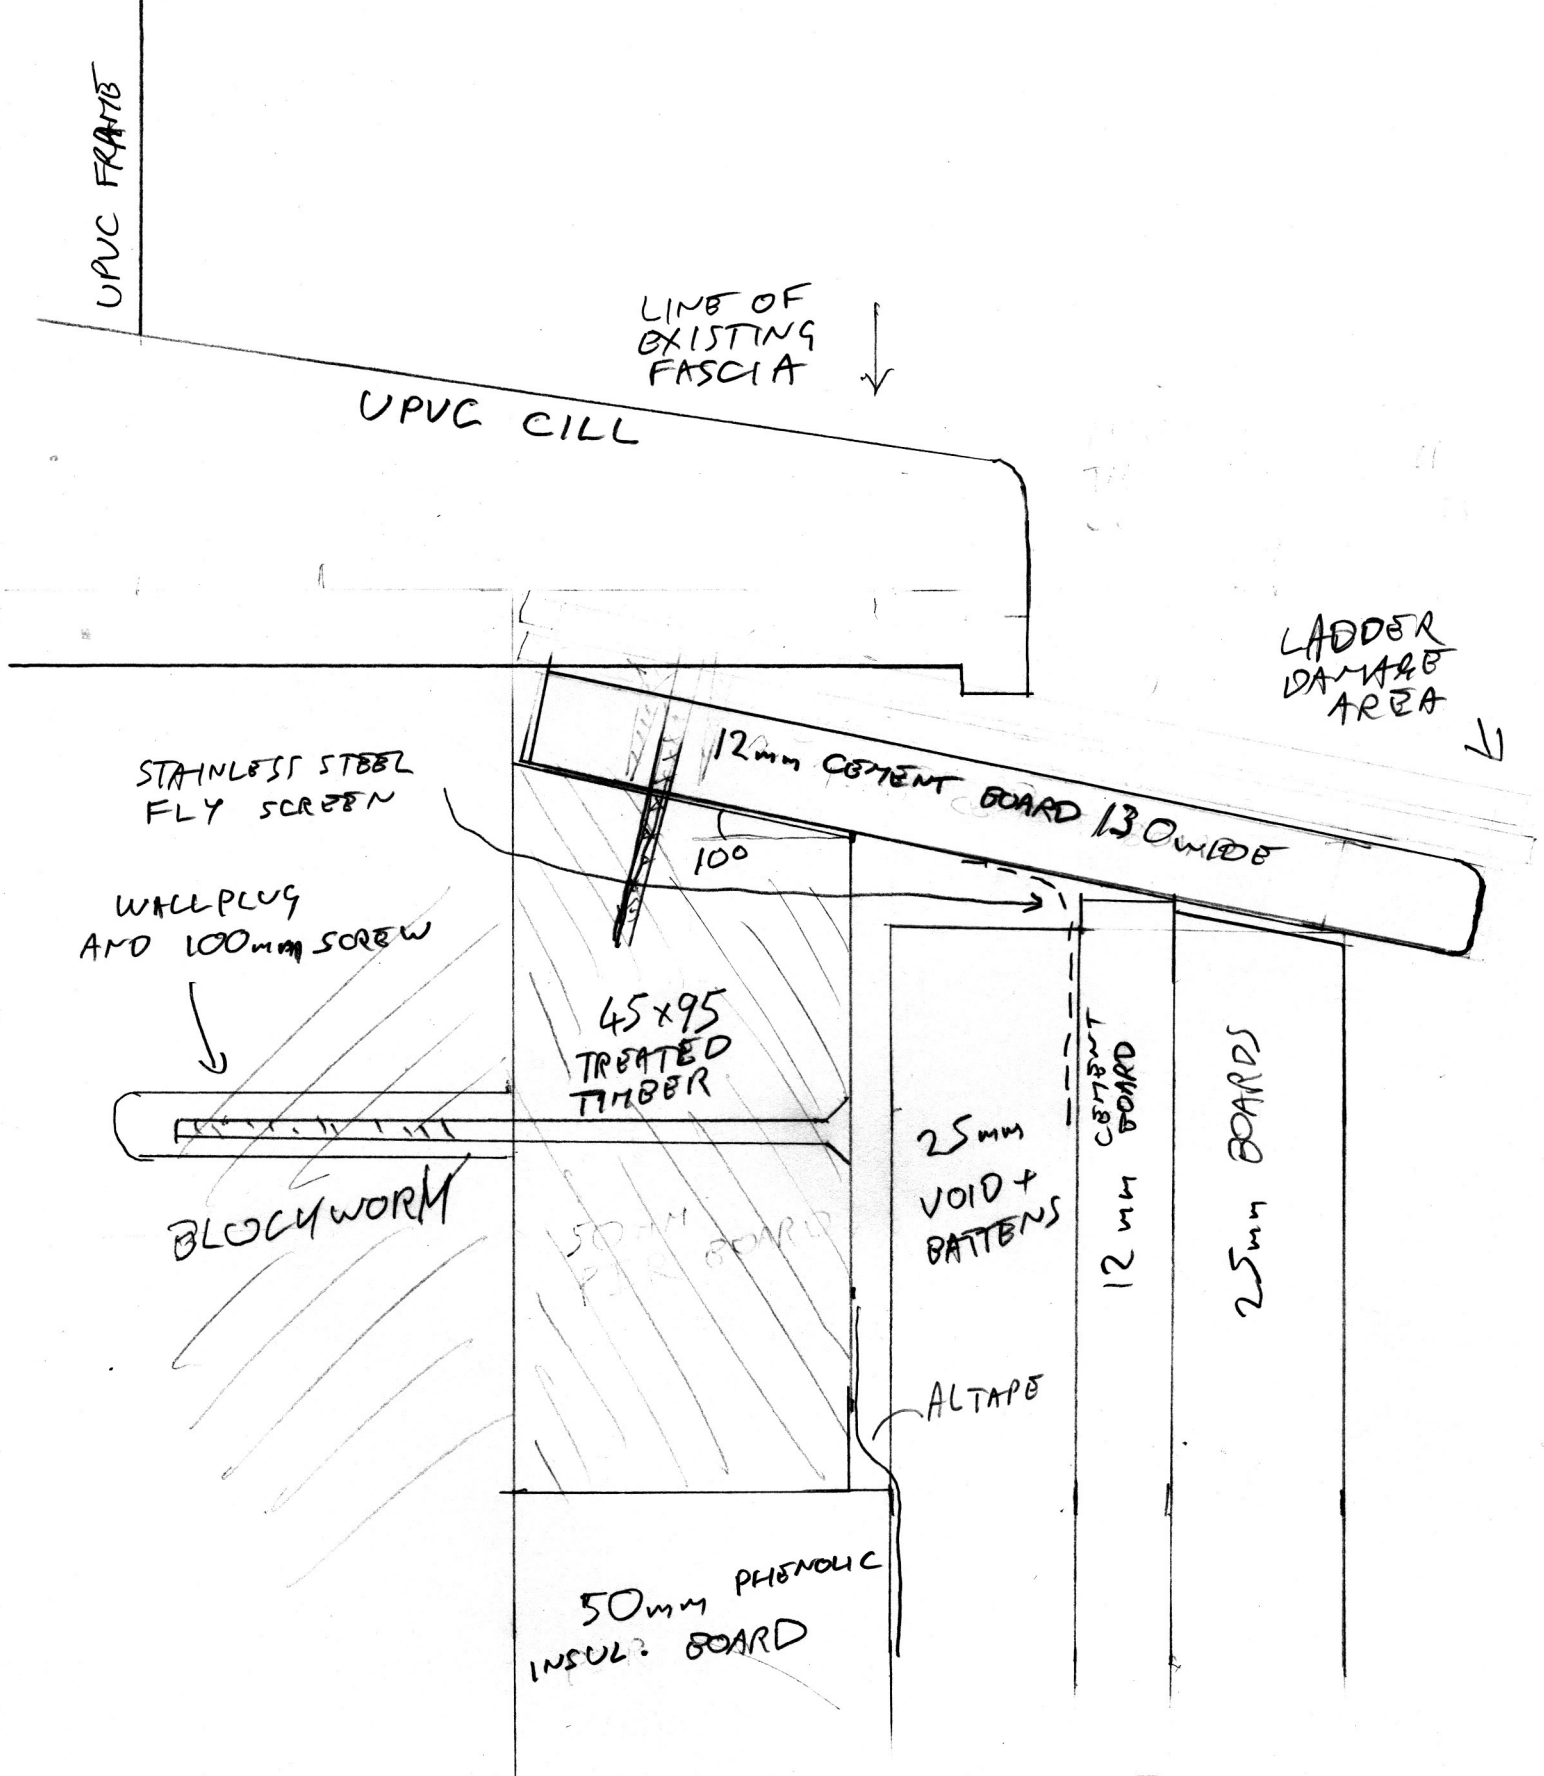 UPVC FRAME
LINE OF
EXISTING
FASCIA
UPVC CILL
LADDER
DAMAGE
AREA
STAINLESS STEEL
FLY SCREEN
12mm CEMENT BOARD 130 WIDE
10°
WALLPLUG
AND 100mm SCREW
45x95
TREATED
TIMBER
BLOCKWORK
25mm
VOID +
BATTENS
12mm CEMENT
BOARD
25mm BOARDS
ALTAPE
50mm PHENOLIC
INSUL. BOARD